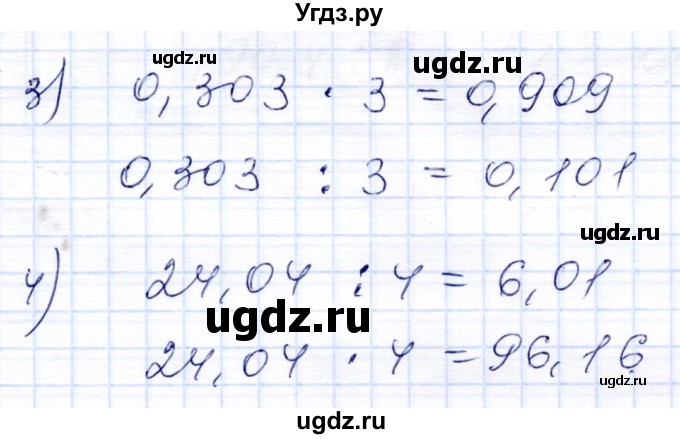 Угдз.ру
3) 0,303 · 3 = 0,909
0,303 : 3 = 0,101
ugdz.ru
4) 24,04 : 4 = 6,01
ugdz.ru
24,04 · 4 = 96,16
ugdz.ru
ugdz.ru